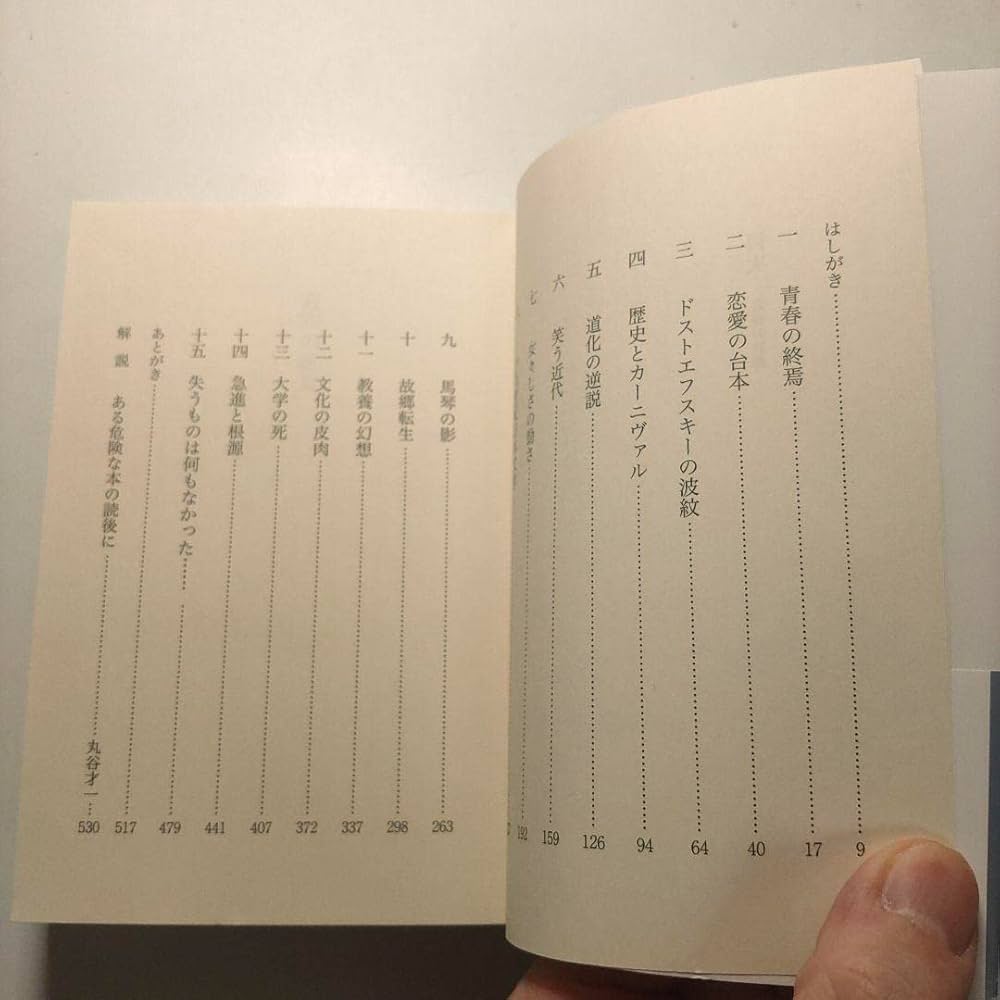 はしがき……9
一 青春の終焉……17
二 恋愛の台本……40
三 ドストエフスキーの波紋……64
四 歴史とカーニヴァル……94
五 道化の逆説……126
六 笑う近代……159
七 しさの動き……192
九 馬琴の影……263
十 故郷転生……298
十一 教養の幻想……337
十二 文化の皮肉……372
十三 大学の死……407
十四 急進と根源……441
十五 失うものは何もなかった……479
あとがき……517
解説 ある危険な本の読後に……丸谷才一…530